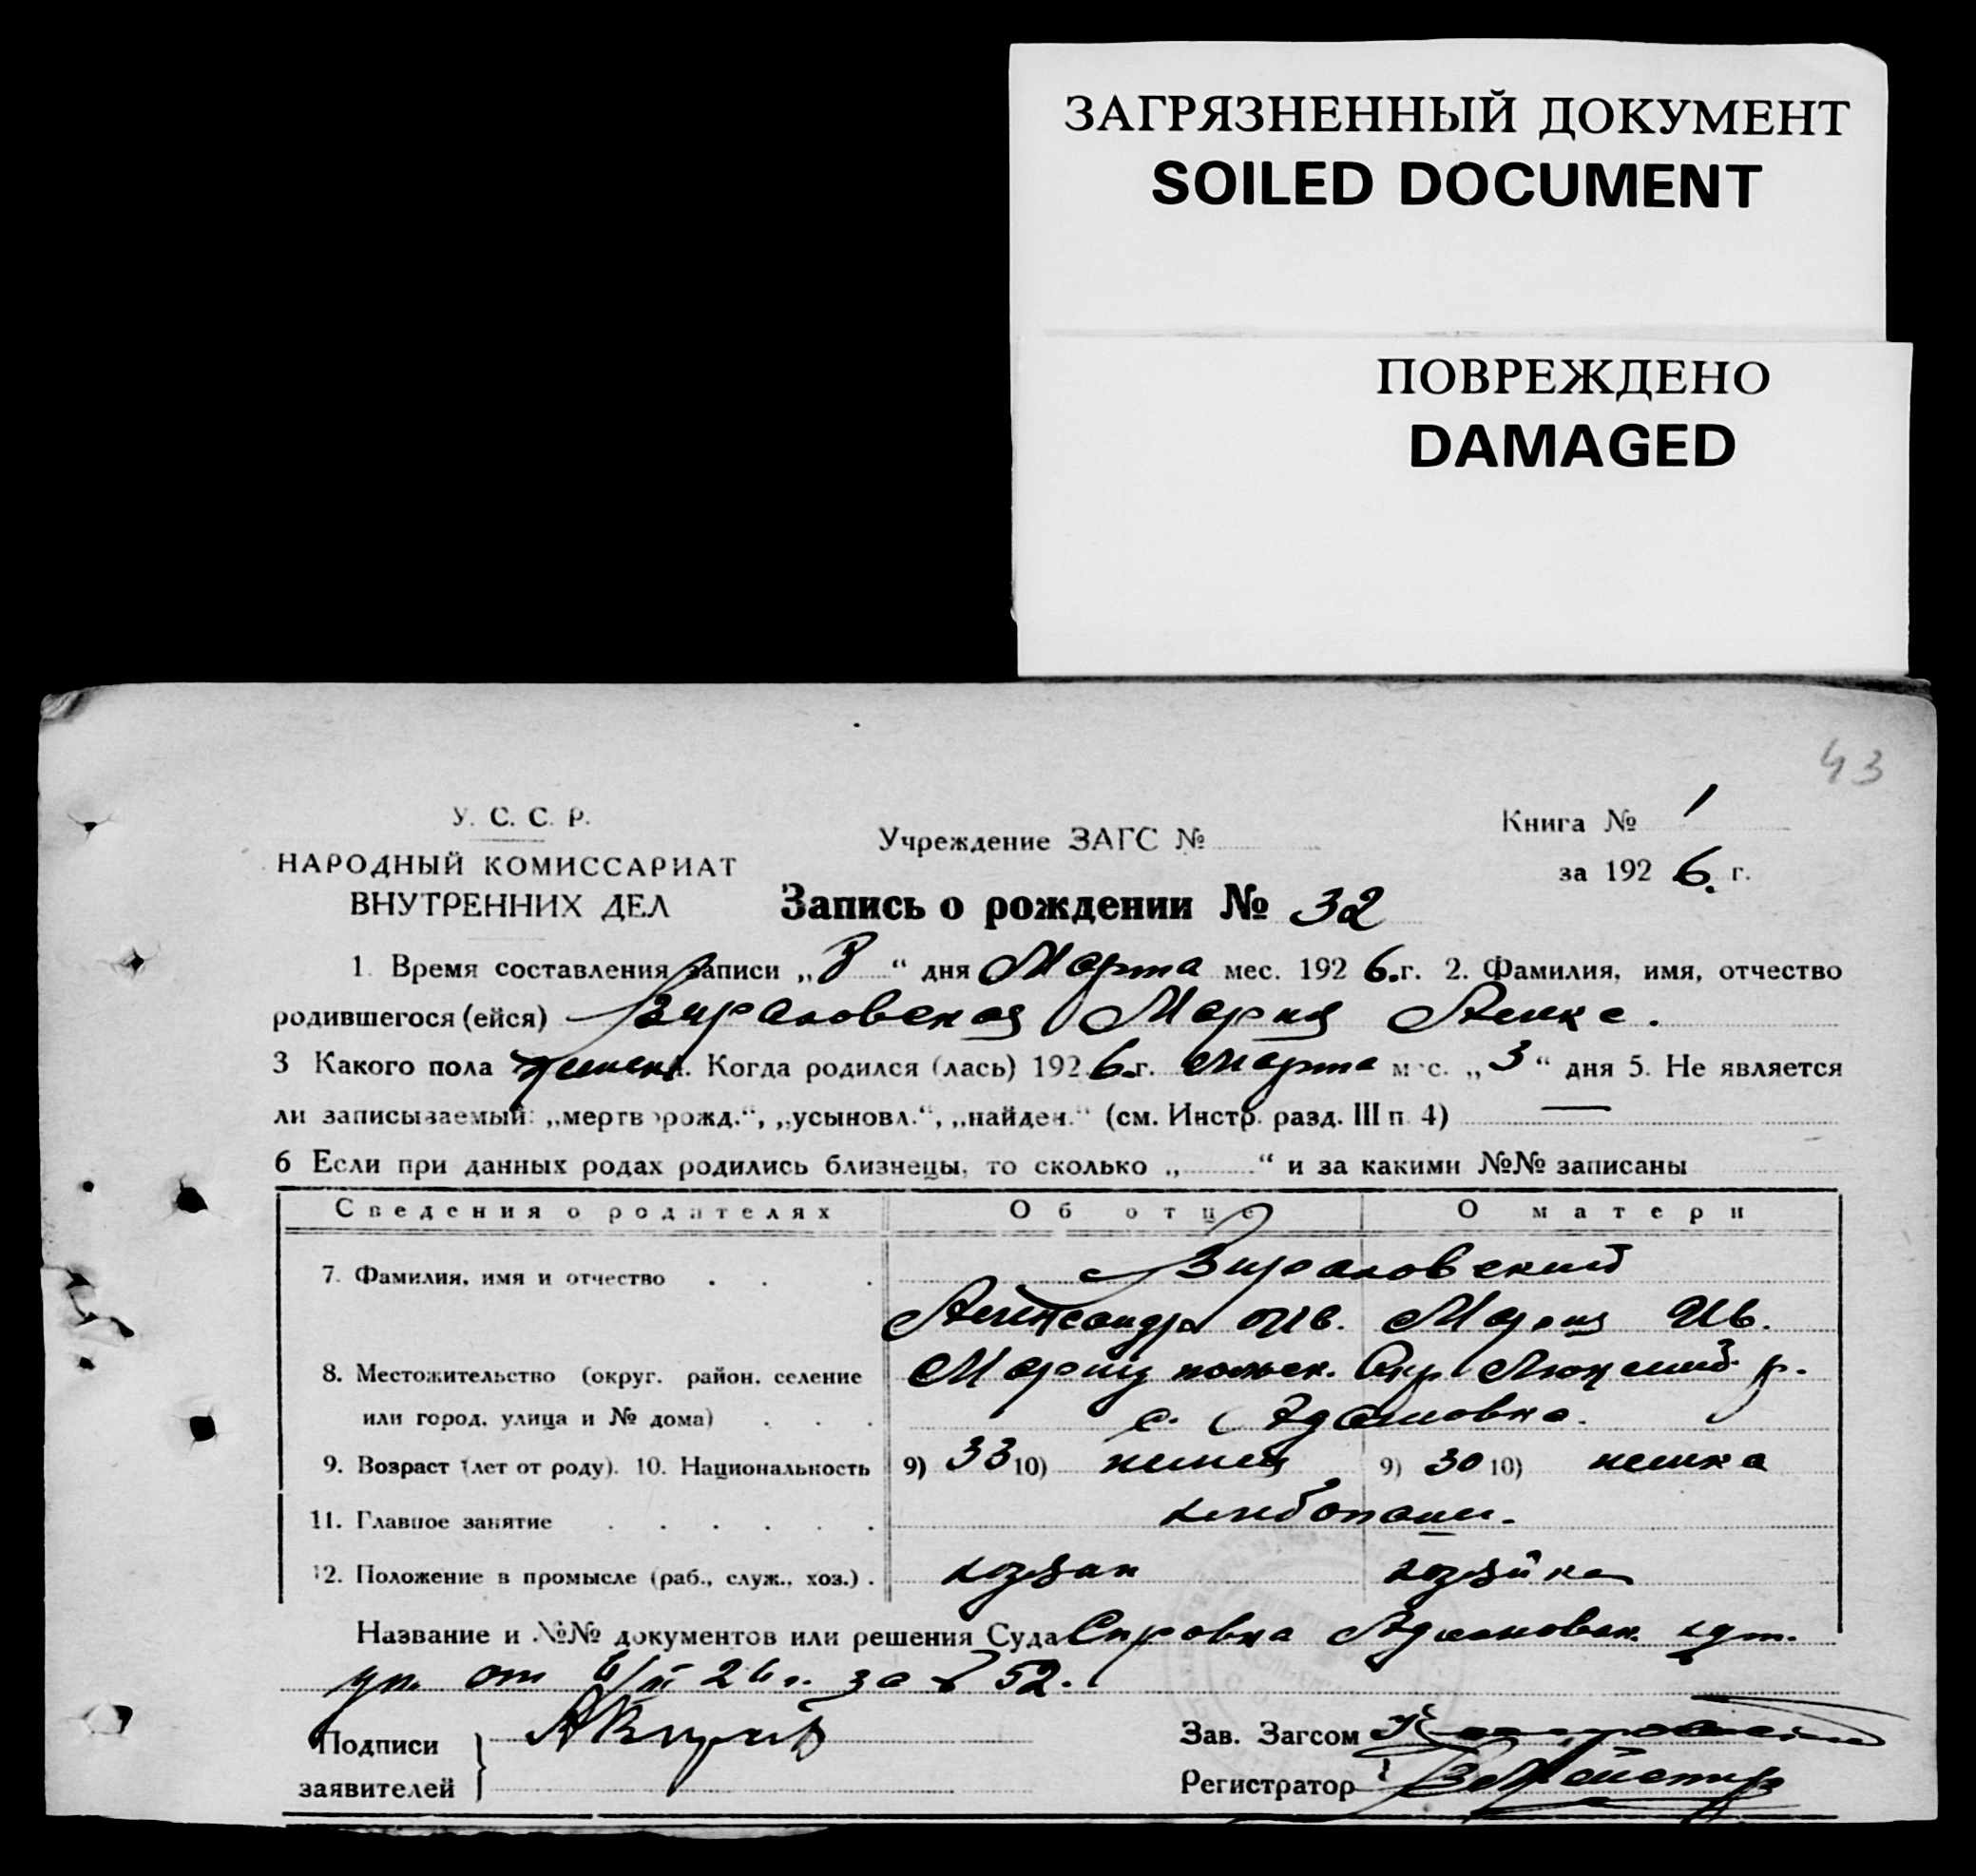 ЗАГРЯЗНЕННЫЙ ДОКУМЕНТ
SOILED DOCUMENT
ПОВРЕЖДЕНО
DAMAGED
43
У. С. С. Р.
НАРОДНЫЙ КОМИССАРИАТ
ВНУТРЕННИХ ДЕЛ
Учреждение ЗАГС №
Книга № 1
за 1926. г.
Запись о рождении № 32
1. Время составления записи „8“ дня Марта мес. 1926.г. 2. Фамилия, имя, отчество
родившегося (ейся) Мария Алекс.
3 Какого пола женск. Когда родился (лась) 1926.г. марта мес. „3“ дня 5. Не является
ли записываемый: „мертворожд.“, „усыновл.“, „найден.“ (см. Инстр. разд. III п. 4) —
6 Если при данных родах родились близнецы, то сколько „ “ и за какими №№ записаны
Сведения о родителях Об отце О матери
7. Фамилия, имя и отчество
Александр Ив. Мария Ив.
8. Местожительство (округ, район, селение Мариупольск. Окр. р.
или город, улица и № дома) с.
9. Возраст (лет от роду). 10. Национальность 9) 33 10) немец 9) 30 10) немка
11. Главное занятие хлебопаш.
12. Положение в промысле (раб., служ., хоз.) хозяин хозяйка
Название и №№ документов или решения Суда Справка
от 26 г. за № 52.
Подписи
заявителей
Зав. Загсом
Регистратор